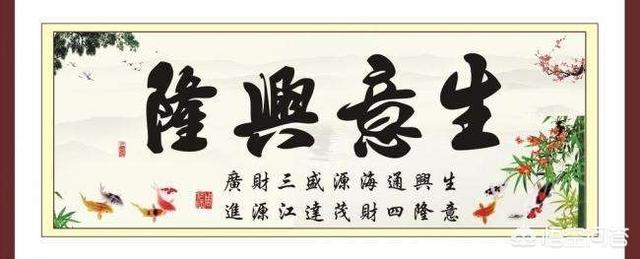 生意興隆
生意
興隆
通四
海財
源茂
盛達
三江
財源
廣進
悟空问答